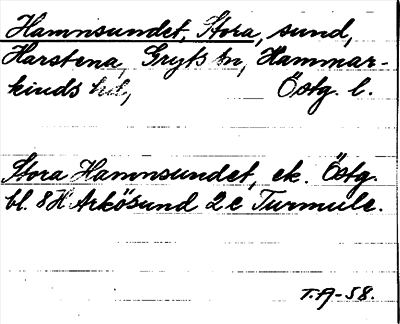 Hamnsundet, Stora, sund,
Harstena, Gryts sn, Hammar-
kinds hd, Östg. l.
Stora Hamnsundet, ek. Östg.
bl. 8 H Arkösund 2 e Turmule.
T.A-58.